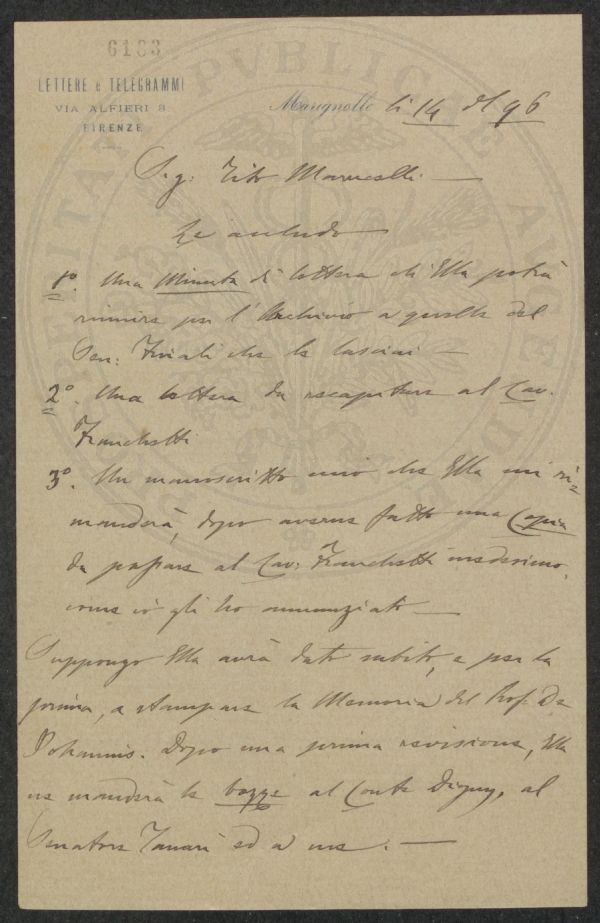 6183
LETTERE e TELEGRAMMI
VIA ALFIERI 8
FIRENZE
Marignolle li 14 del 96
Sig: Tito Marucelli
Le accludo
1º. Una Minuta di lettera che Ella potrà
riunire per l'Archivio a quelle del
Sen: Finali che le lasciai
2º. Una lettera da recapitare al Cav.
Franchetti
3º. Un manoscritto mio che Ella mi ri=
manderà, dopo averne fatto una Copia
da passare al Cav: Franchetti medesimo,
come io gli ho annunziato
Suppongo Ella avrà dato subito, e per la
prima, a stampare la Memoria del Prof. De
Johannis. Dopo una prima revisione, Ella
ne manderà le bozze al Conte Digny, al
Senatore Tanari ed a me.